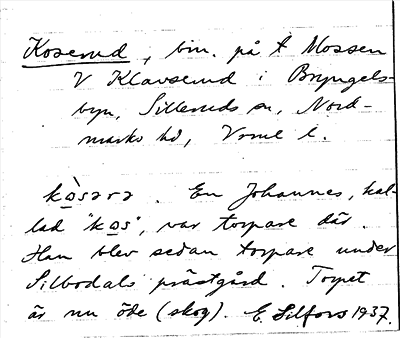 Koserud, bin. på t Mossen
V Klavserud i Bryngels-
byn, Silleruds sn, Nord-
marks hd, Vrml l.
kòsərə. En Johannes, kal-
lad "kos", var torpare där.
Han blev sedan torpare under
Silbodals prästgård. Torpet
är nu öde (skog). E. Silfors 1937.